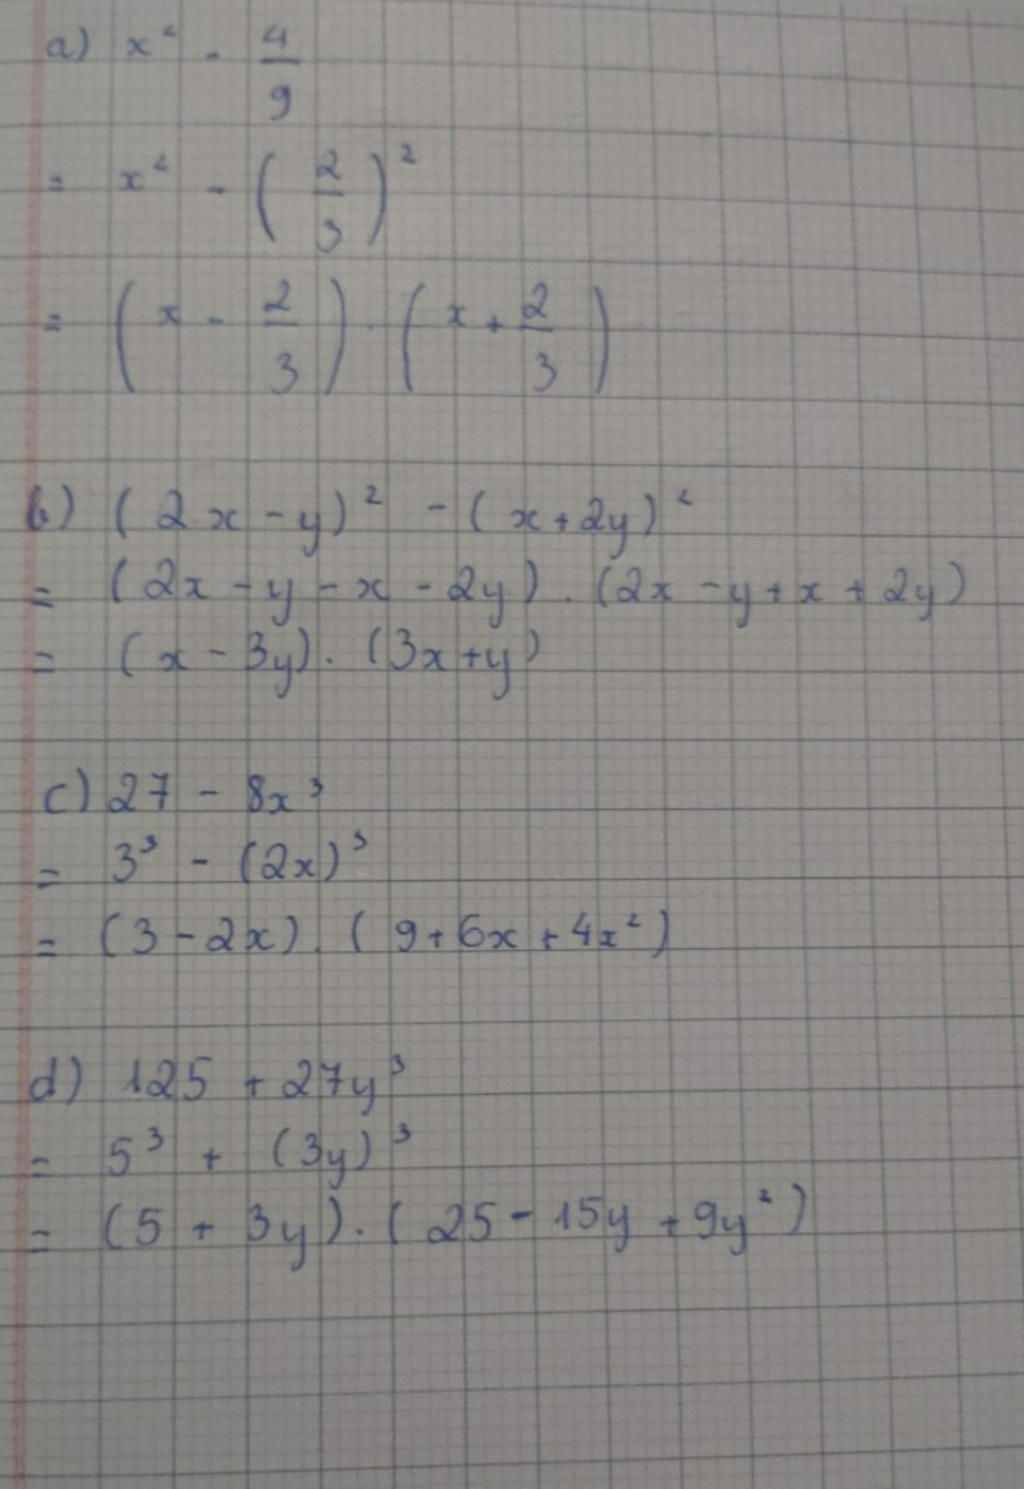 a) x² - 4/9
= x² - (2/3)²
= (x - 2/3) . (x + 2/3)
b) (2x - y)² - (x + 2y)²
= (2x - y - x - 2y) . (2x - y + x + 2y)
= (x - 3y) . (3x + y)
c) 27 - 8x³
= 3³ - (2x)³
= (3 - 2x) . (9 + 6x + 4x²)
d) 125 + 27y³
= 5³ + (3y)³
= (5 + 3y) . (25 - 15y + 9y²)